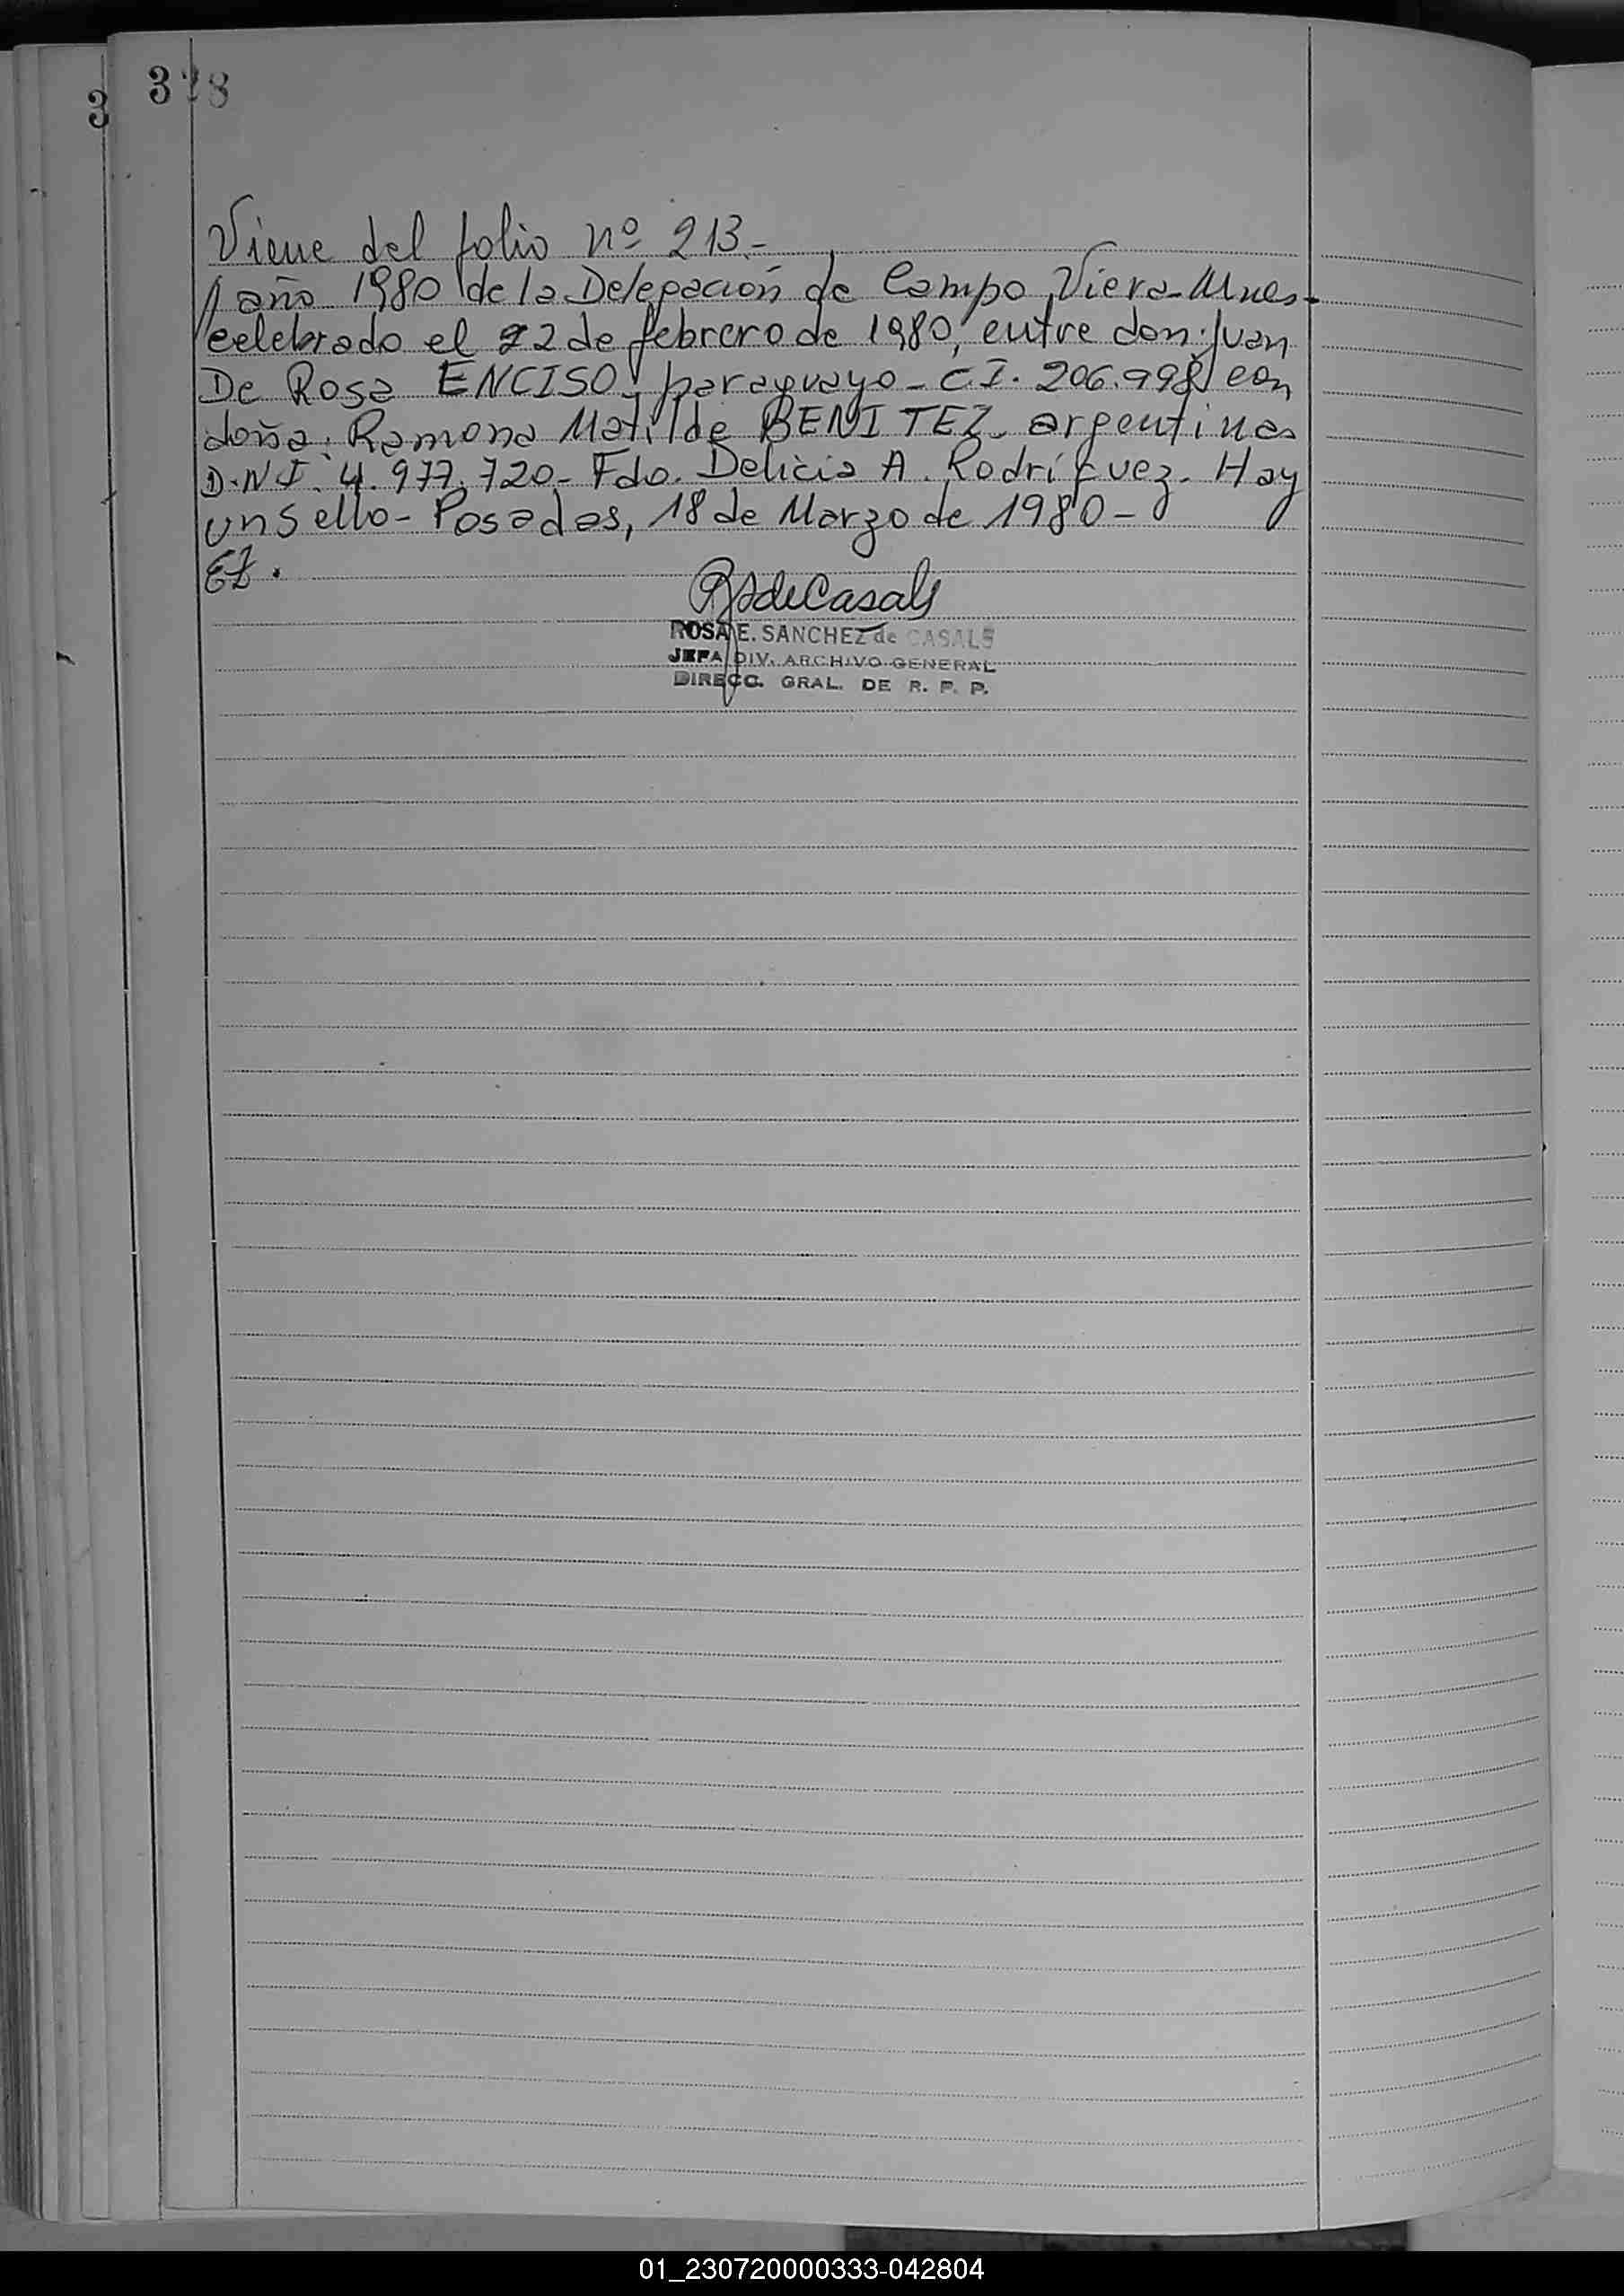 3
328
Viene del folio nº 213.-
/ año 1980 de la Delegación de Campo Viera-Mnes.-
celebrado el 22 de febrero de 1980, entre don: Juan
De Rosa ENCISO, paraguayo - C.I. 206.998, con
doña: Ramona Matilde BENITEZ - argentina -
D.N.I. 4.977.720.- Fdo. Delicia A. Rodríguez - Hay
un sello - Posadas, 18 de Marzo de 1980 -
EZ.
RSdeCasals
ROSA E. SANCHEZ de CASALS
JEFA DIV. ARCHIVO GENERAL
DIRECC. GRAL. DE R. P. P.
01_230720000333-042804